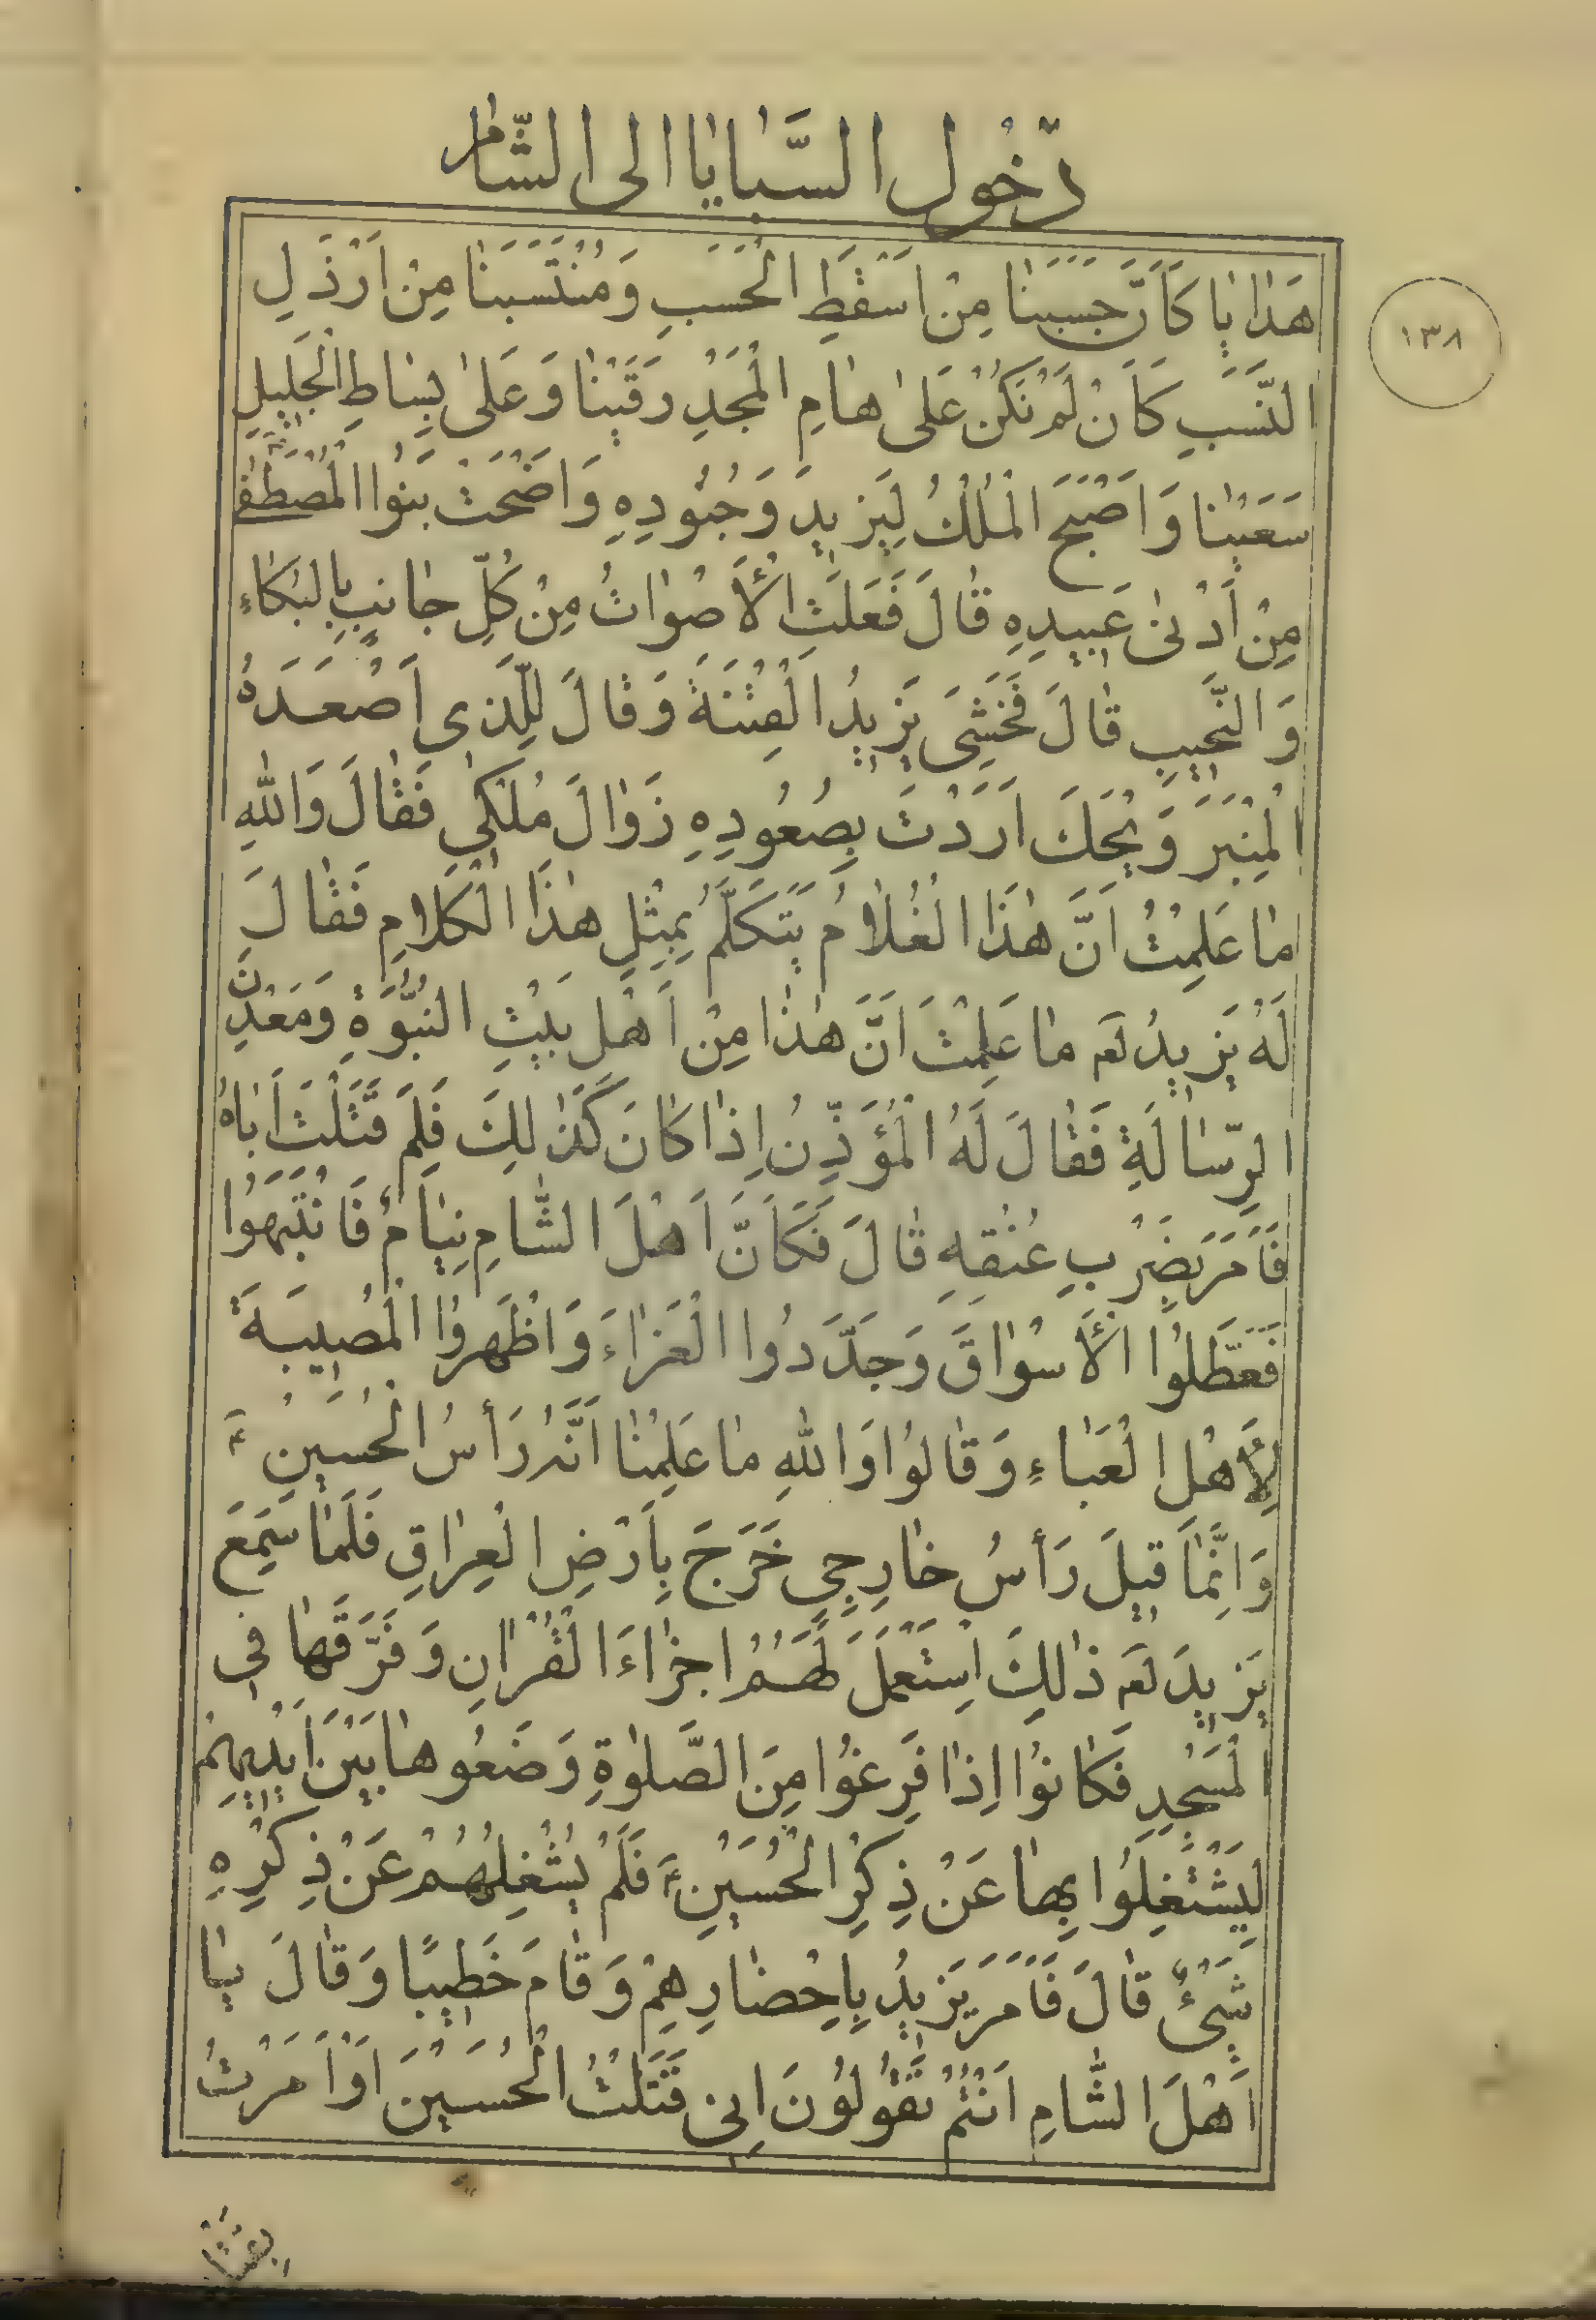 دُخُولُ السَّبٰايٰا اِلَى الشّٰامِ
١٣٨
هَدٰايٰا كَاَنَّ حَسَبَنٰا مِنْ اَسْقَطِ الْحَسَبِ وَمُنْتَسَبَنٰا مِنْ اَرْذَلِ
النَّسَبِ كَاَنْ لَمْ نَكُنْ عَلىٰ هٰامِ الْمَجْدِ رَقَيْنٰا وَعَلىٰ بِسٰاطِ الْجَلِيلِ
سَعَيْنٰا وَاَصْبَحَ الْمُلْكُ لِيَزِيدَ وَجُنُودِهِ وَاَضْحَتْ بَنُوا الْمُصْطَفىٰ
مِنْ أَدْنىٰ عَبِيدِهِ قٰالَ فَعَلَتِ الْأَصْوٰاتُ مِنْ كُلِّ جٰانِبٍ بِالْبُكٰاءِ
وَالنَّحِيبِ قٰالَ فَخَشِىَ يَزِيدُ الْفِتْنَةَ وَقٰالَ لِلَّذِى اَصْعَدَهُ
الْمِنْبَرَ وَيْحَكَ اَرَدْتَ بِصُعُودِهِ زَوٰالَ مُلْكِي فَقٰالَ وَاللّٰهِ
مٰا عَلِمْتُ اَنَّ هٰذَا الْغُلٰامُ يَتَكَلَّمُ بِمِثْلِ هٰذَا الْكَلٰامِ فَقٰالَ
لَهُ يَزِيدُ لَعَه مٰا عَلِمْتَ اَنَّ هٰذٰا مِنْ اَهْلِ بَيْتِ النُّبُوَّةِ وَمَعْدِنِ
الرِّسٰالَةِ فَقٰالَ لَهُ الْمُؤَذِّنُ اِذٰا كٰانَ كَذٰلِكَ فَلِمَ قَتَلْتَ اَبٰاهُ
فَاَمَرَ بِضَرْبِ عُنُقِهِ قٰالَ فَكَاَنَّ اَهْلَ الشّٰامِ نِيٰامٌ فَانْتَبَهُوا
فَعَطَّلُوا الْأَسْوٰاقَ وَجَدَّدُوا الْعَزٰاءَ وَاَظْهَرُوا الْمُصِيبَةَ
لِأَهْلِ الْعَبٰاءِ وَقٰالُوا وَاللّٰهِ مٰا عَلِمْنٰا اَنَّهُ رَأْسُ الْحُسَيْنِ ع
وَاِنَّمٰا قِيلَ رَأْسُ خٰارِجِيٍ خَرَجَ بِاَرْضِ الْعِرٰاقِ فَلَمّٰا سَمِعَ
يَزِيدَ لَعَه ذٰلِكَ اِسْتَعْمَلَ لَهُمْ اَجْزٰاءَ الْقُرْاٰنِ وَفَرَّقَهٰا فِي
الْمَسْجِدِ فَكٰانُوا اِذٰا فَرِغُوا مِنَ الصَّلوٰةِ وَضَعُوهٰا بَيْنَ اَيْدِيهِمْ
لِيَشْتَغِلُوا بِهٰا عَنْ ذِكْرِ الْحُسَيْنِ ع فَلَمْ يُشْغِلْهُمْ عَنْ ذِكْرِهِ
شَيْئٌ قٰالَ فَاَمَرَ يَزِيدُ بِاِحْضٰارِهِمْ وَقٰامَ خَطِيبًا وَقٰالَ يٰا
اَهْلَ الشّٰامِ اَنْتُمْ تَقُولُونَ اِنِى قَتَلْتُ الْحُسَيْنَ اَوْ اَمَرْتُ